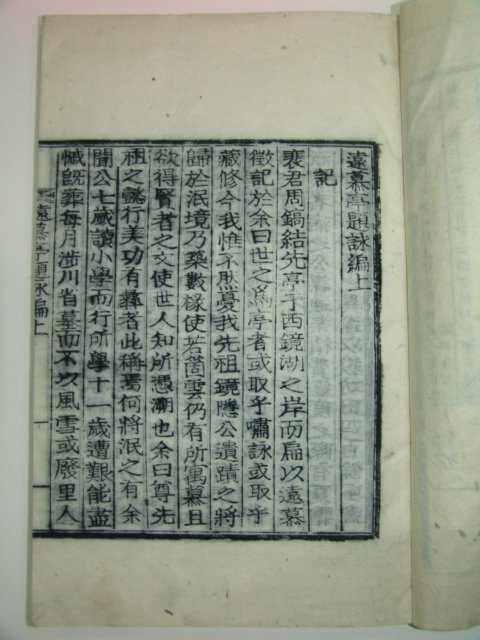 遠慕亭題詠編上
記
裵君周鎬結先亭于西鏡湖之岸而扁以遠慕
徵記於余曰世之爲亭者或取乎嘯詠或取乎
藏修今我惟不然憂我先祖鏡隱公遺蹟之將
歸於泯境乃築數椽使若而雲仍有所寓慕且
欲得賢者之文使世人知所憑溯也余曰尊先
祖之懿行美功有彝者此稱焉何將泯之有余
聞公七歲讀小學而行所學十一歲遭艱能盡
慽旣葬每月涉川省墓而不以風雪或廢里人
遠慕亭題詠編上
一